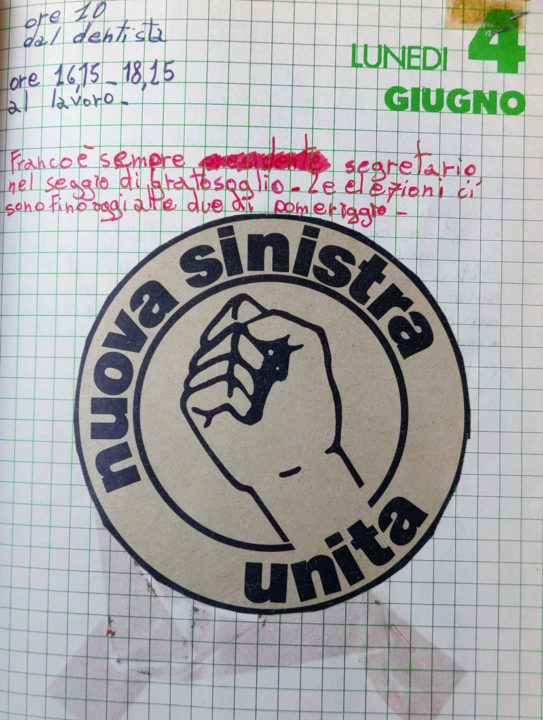 ore 10
dal dentista
ore 16,15 - 18,15
al lavoro -
LUNEDI 4
GIUGNO
Franco è sempre segretario
nel seggio di gratosoglio - Le elezioni ci
sono fino oggi alle due di pomeriggio -
nuova sinistra
unita